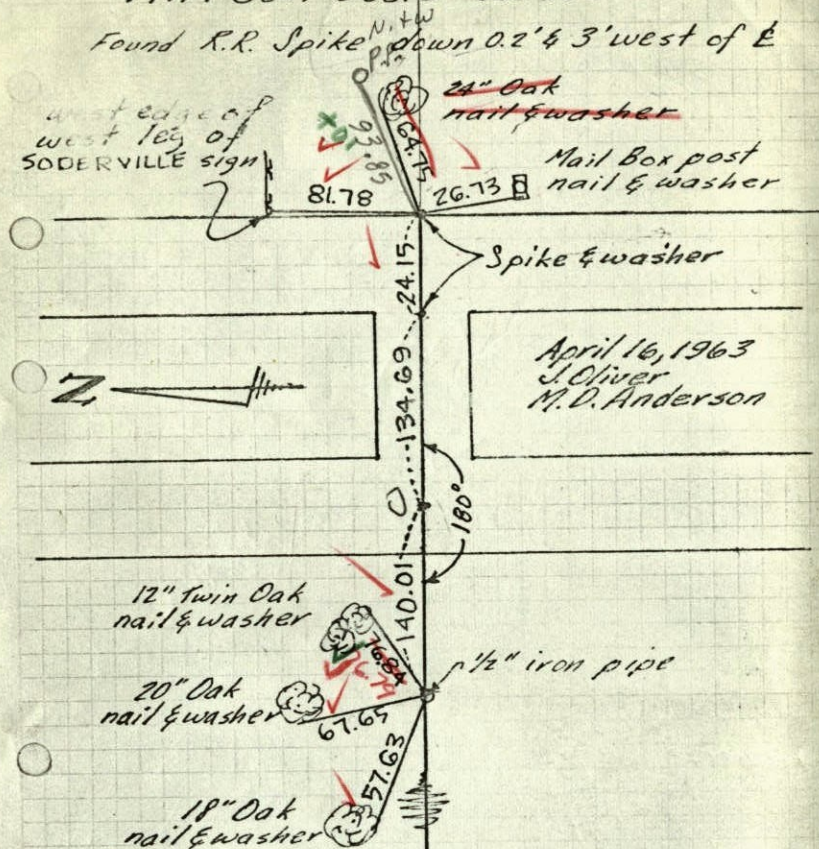 Found R.R. Spike down 0.2' & 3' west of ℄
N. & W
P.P.
24" Oak
nail & washer
west edge of
west leg of
SODERVILLE sign
93.85
64.75
Mail Box post
nail & washer
81.78
26.73
24.15
Spike & washer
134.69
April 16, 1963
J. Oliver
M.D. Anderson
N
180°
140.01
12" Twin Oak
nail & washer
76.84
76.79
1/2" iron pipe
20" Oak
nail & washer
67.65
57.63
18" Oak
nail & washer